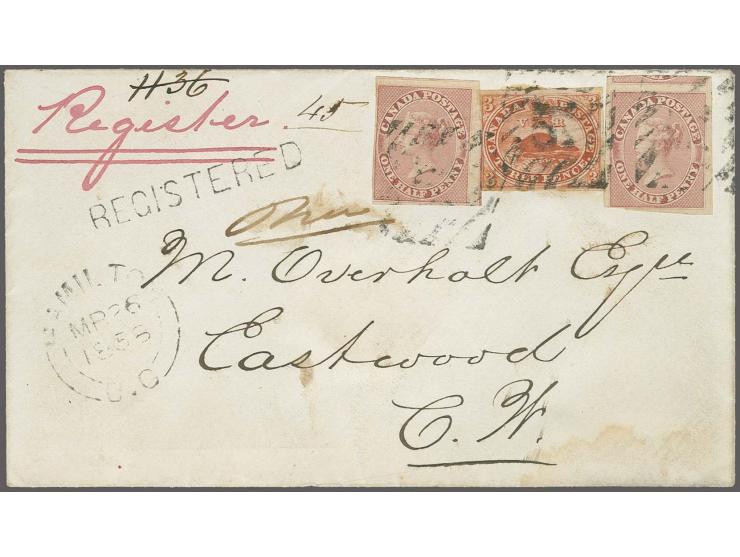 #36
Register
45
REGISTERED
CANADA POSTAGE
ONE HALF PENNY
3 CANADA POSTAGE 3
V R
3 THREE PENCE 3
CANADA POSTAGE
ONE HALF PENNY
HAMILTO
MR 26
1856
U.C
M. Overholt Esqre
Eastwood
C.W.